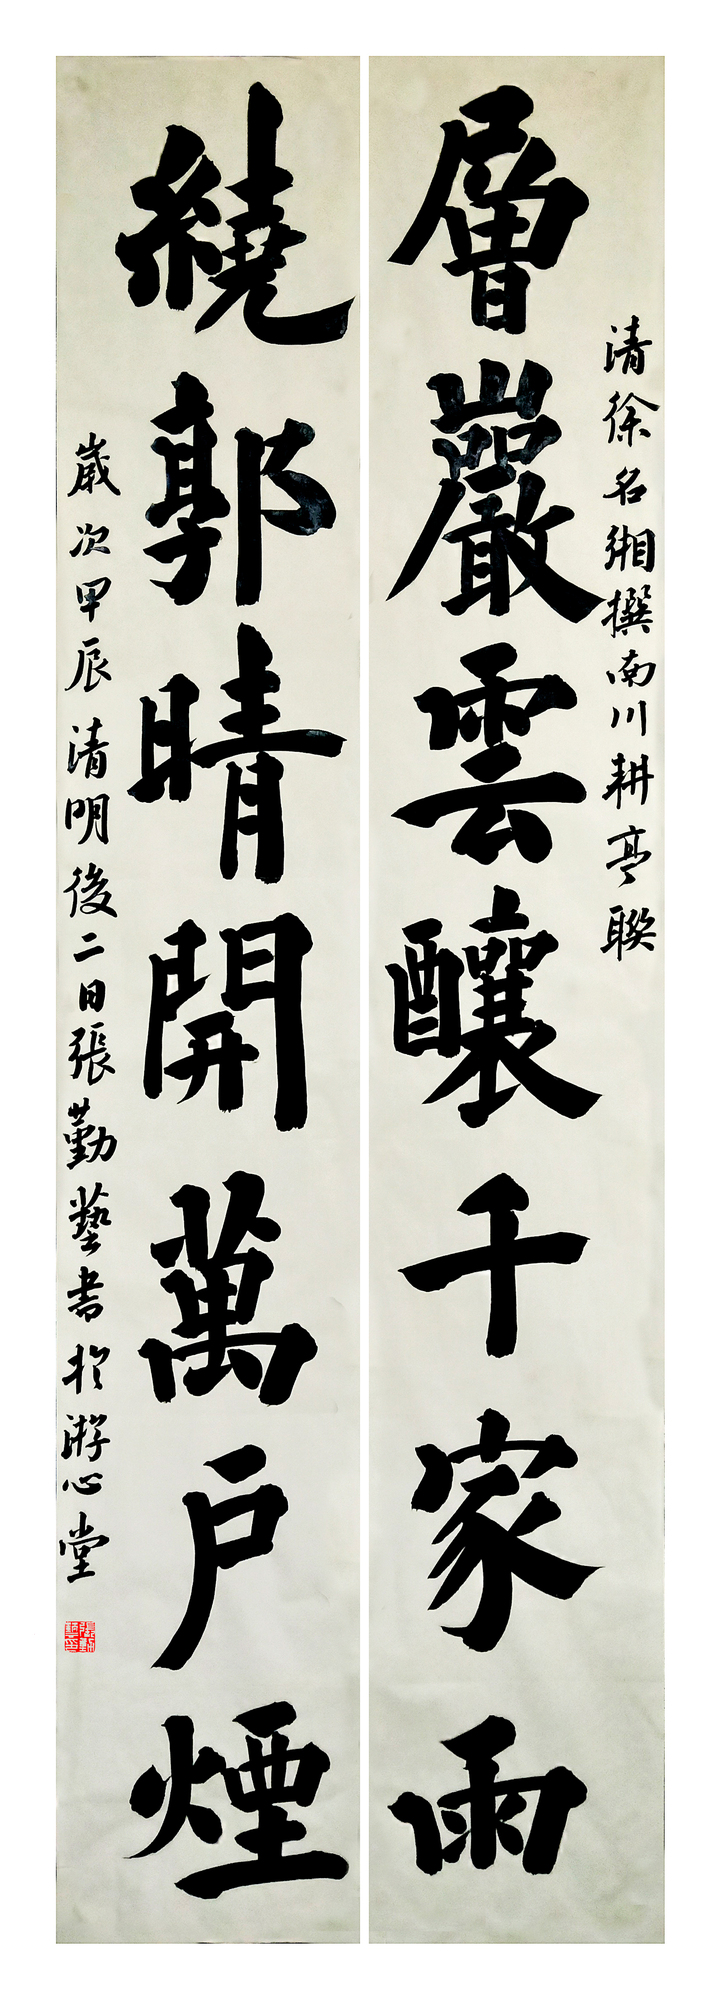 清徐名緗撰南川耕亭聯
層巖雲釀千家雨
繞郭晴開萬戶煙
歲次甲辰清明後二日張勤藝書於游心堂